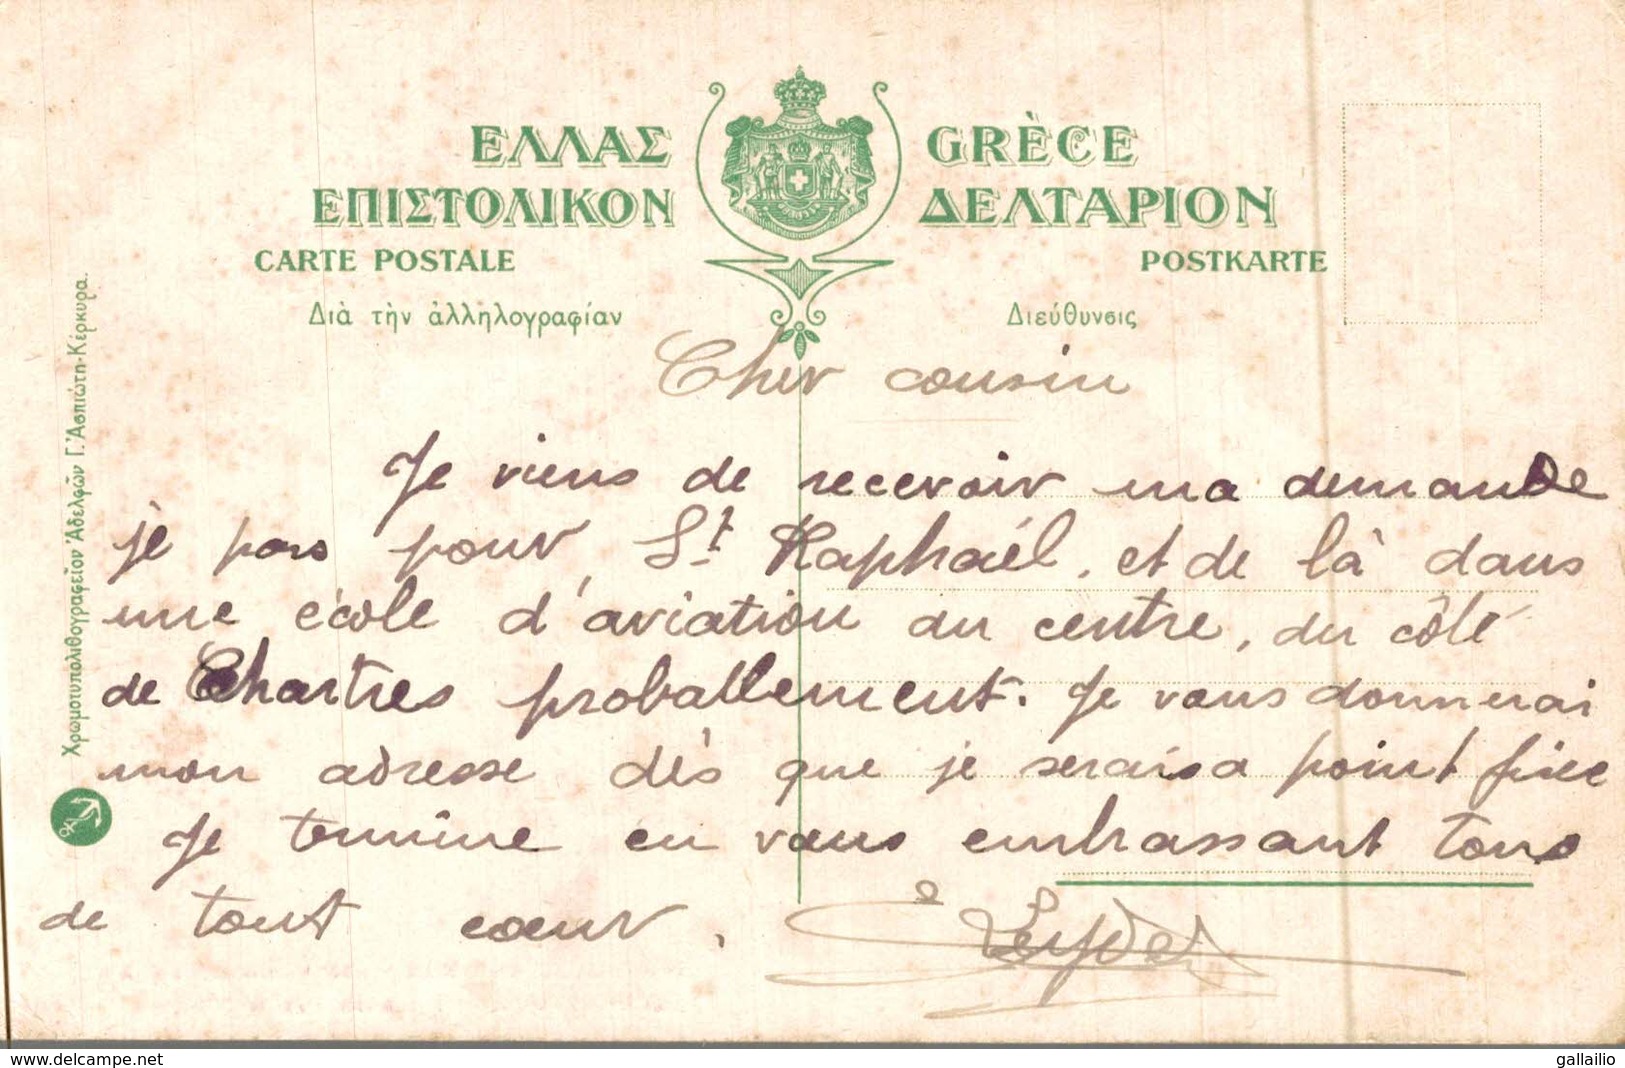 ΕΛΛΑΣ GRÈCE
ΕΠΙΣΤΟΛΙΚΟΝ ΔΕΛΤΑΡΙΟΝ
CARTE POSTALE POSTKARTE
Διὰ τὴν ἀλληλογραφίαν Διεύθυνσις
Χρωμοτυπολιθογραφεῖον Ἀδελφῶν Γ. Ἀσπιώτη-Κέρκυρα.
Cher cousin
Je viens de recevoir ma demande
je pars pour St Raphaél, et de là dans
une école d'aviation du centre, du côté
de Chartres proballement. Je vous donnerai
mon adresse dès que je serais a point fixe
Je termine en vous embrassant tous
de tout cœur.
www.delcampe.net
gallailio